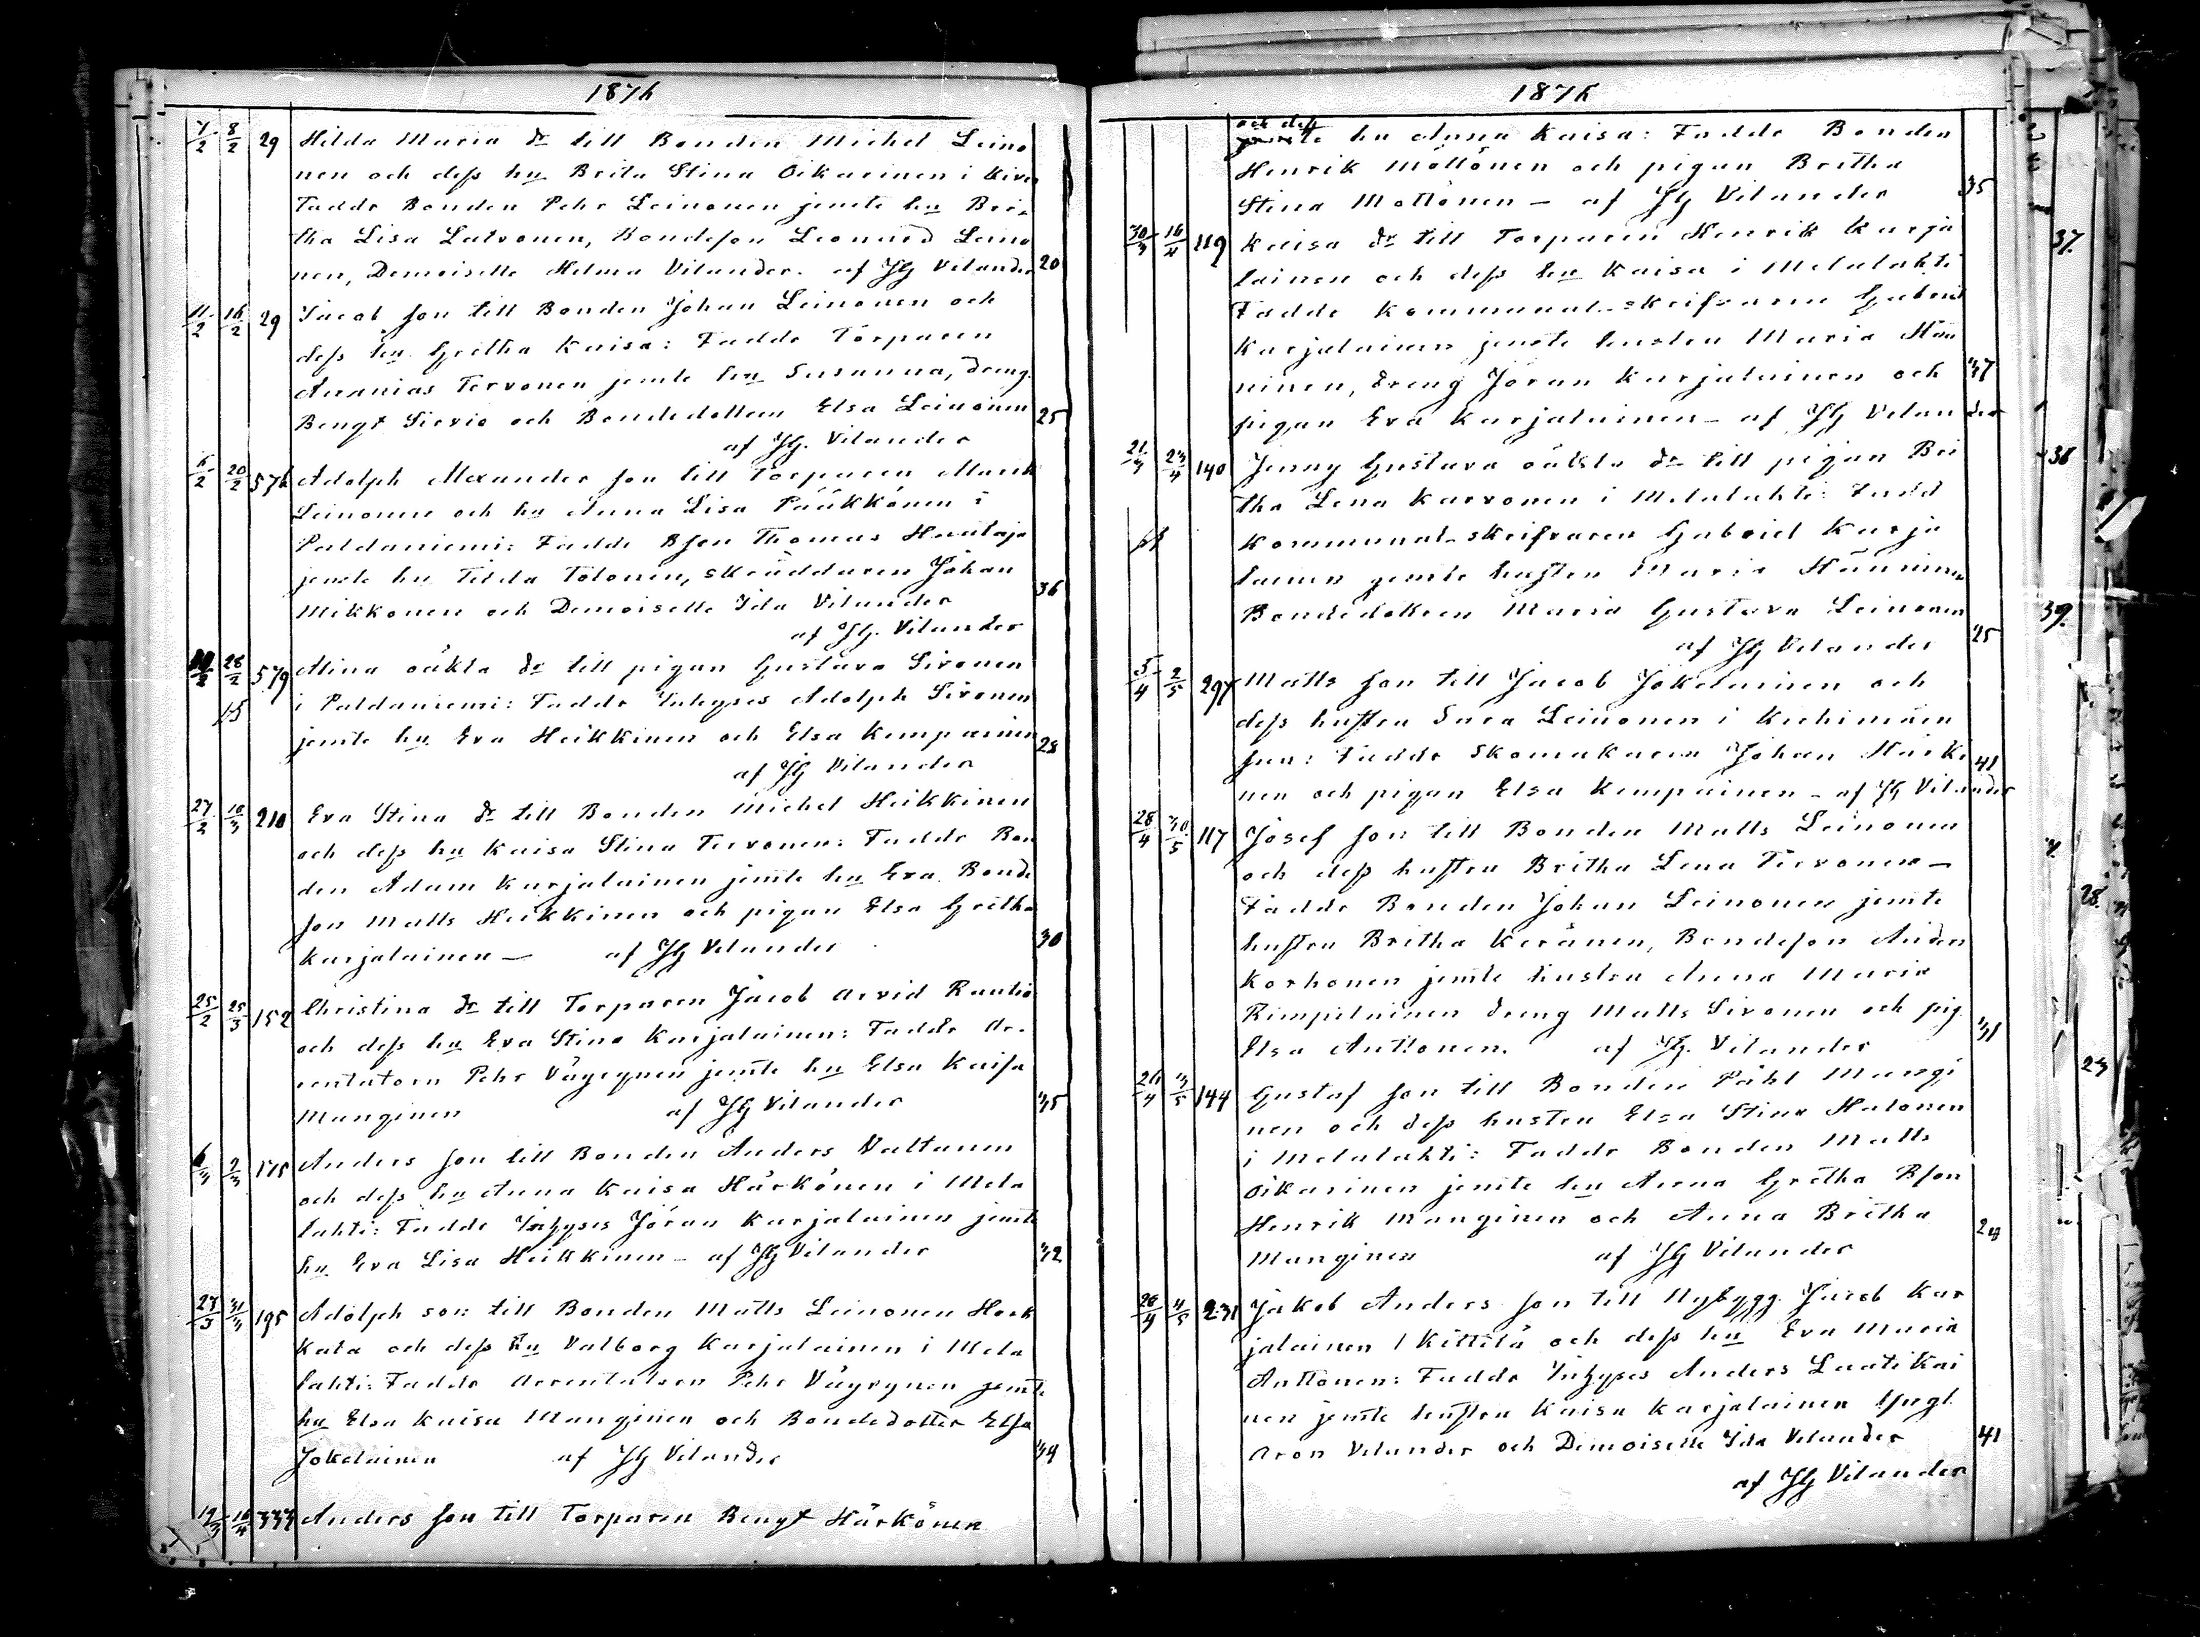 1876
7/2 8/2 29 Hilda Maria dr till Bonden Michel Leino
nen och dess hu Brita Stina Oikarinen i Kive
Faddr Bonden Pehr Leinonen jemte hu Bri-
tha Lisa Latvonen, Bondeson Leonard Leino
nen, Demoiselle Helma Vilander. af JG Vilander 20
11/2 16/2 29 Jacob son till Bonden Johan Leinonen och
dess hu Gretha Kaisa: Faddr Torparen
Ananias Tervonen jemte hu Susanna, dreng
Bengt Sirviö och Bondedottern Elsa Leinonen 25
af JG. Vilander
6/2 20/2 576 Adolph Alexander son till Torparen Maurit
Leinonen och hu Anna Lisa Pääkkönen i
Paldaniemi: Faddr Bson Thomas Huutaja
jemte hu Tilda Tolonen, skräddaren Johan 36
Mikkonen och Demoiselle Ida Vilander
af JG. Vilander
28/2 579 Mina oäkta dr till pigan Gustava Sivonen
i Paldaniemi: Faddr Inhyses Adolph Sivonen
jemte hu Eva Heikkinen och Elsa Kempainen 28
af JG Vilander
27/2 10/3 210 Eva Stina dr till Bonden Michel Heikkinen
och dess hu Kaisa Stina Tervonen: Faddr Bon
den Adam Karjalainen jemte hu Eva Bonde
son Matts Heikkinen och pigan Elsa Gretha
Karjalainen — af JG Vilander 30
25/2 25/3 152 Christina dr till Torparen Jacob Arvid Rautio
och dess hu Eva Stina Karjalainen: Faddr Ar-
rentatorn Pehr Väyrynen jemte hu Elsa Kaisa
Manginen af JG Vilander 35
Anders son till Bonden Anders Valtanen
och dess hu Anna Kaisa Härkönen i Mela
lahti: Faddr Inhyses Jöran Karjalainen jemte
hu Eva Lisa Heikkinen — af JG Vilander 32
23/3 31/3 195 Adolph son till Bonden Matts Leinonen Hork
kala och dess hu Valborg Karjalainen i Mela
lahti: Faddr Arrentatorn Pehr Väyrynen jemte
hu Elsa Kaisa Manginen och Bondedotter Elsa
Jokelainen af JG Vilander 34
19/3 16/4 334 Anders son till Torparen Bengt Härkönen
1876
och dess
jemte hu Anna Kaisa: Faddr Bonden
Henrik Möttönen och pigan Britha
Stina Möttönen — af JG Vilander 35
30/3 16/4 119 Kaisa dr till Torparen Henrik Karja
lainen och dess hu Kaisa i Melalahti
Faddr Kommunal-skrifvaren Gabriel
Karjalainen jemte hustru Maria Hän
ninen, dreng Jöran Karjalainen och 37
pigan Eva Karjalainen — af JG Vilander
21/3 23/4 140 Jenny Gustava oäkta dr till pigan Bri
tha Lena Karvonen i Melalahti: Fadd
Kommunal-skrifvaren Gabriel Karja
lainen jemte hustru Maria Hänninen
Bondedottren Maria Gustava Leinonen
af JG Vilander 25
5/4 2/5 297 Matts son till Jacob Jokelainen och
dess hustru Sara Leinonen i Kiehimäen
suu: Faddr Skomakaren Johan Härkö 41
nen och pigan Elsa Kempainen — af JG Vilander
28/4 30/5 117 Josef son till Bonden Matts Leinonen
och dess hustru Britha Lena Tervonen —
Faddr Bonden Johan Leinonen jemte
hustru Britha Keränen, Bondeson Anders
Korhonen jemte hustru Anna Maria
Rimpiläinen dreng Matts Sivonen och pig
Elsa Anttonen. af JG. Vilander 31
26/4 3/5 144 Gustaf son till Bonden Påhl Mangi
nen och dess hustru Elsa Stina Halonen
i Melalahti: Faddr Bonden Matts
Oikarinen jemte hu Anna Gretha Bson
Henrik Manginen och Anna Britha 24
Manginen af JG Vilander
26/4 4/5 231 Jakob Anders son till Nybygg. Jacob Kar
jalainen / Kittilä och dess hu Eva Maria
Anttonen: Faddr Inhyses Anders Luatikai
nen jemte hustru Kaisa Karjalainen Yngl.
Aron Vilander och Demoiselle Ida Vilander 41
af JG Vilander
37.
38
39.
28.
23